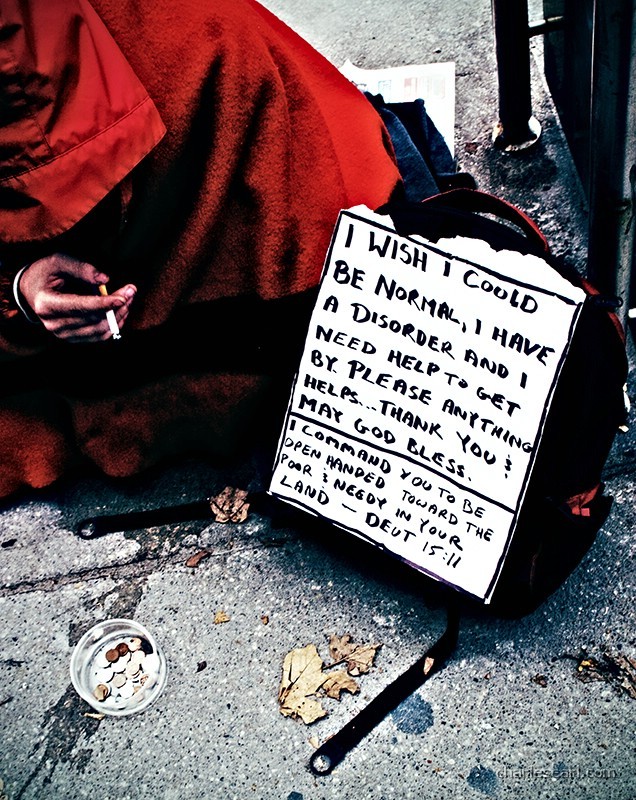 I WISH I COULD
BE NORMAL, I HAVE
A DISORDER AND I
NEED HELP TO GET
BY. PLEASE ANYTHING
HELPS...THANK YOU &
MAY GOD BLESS.
I COMMAND YOU TO BE
OPEN HANDED TOWARD THE
POOR & NEEDY IN YOUR
LAND - DEUT 15:11